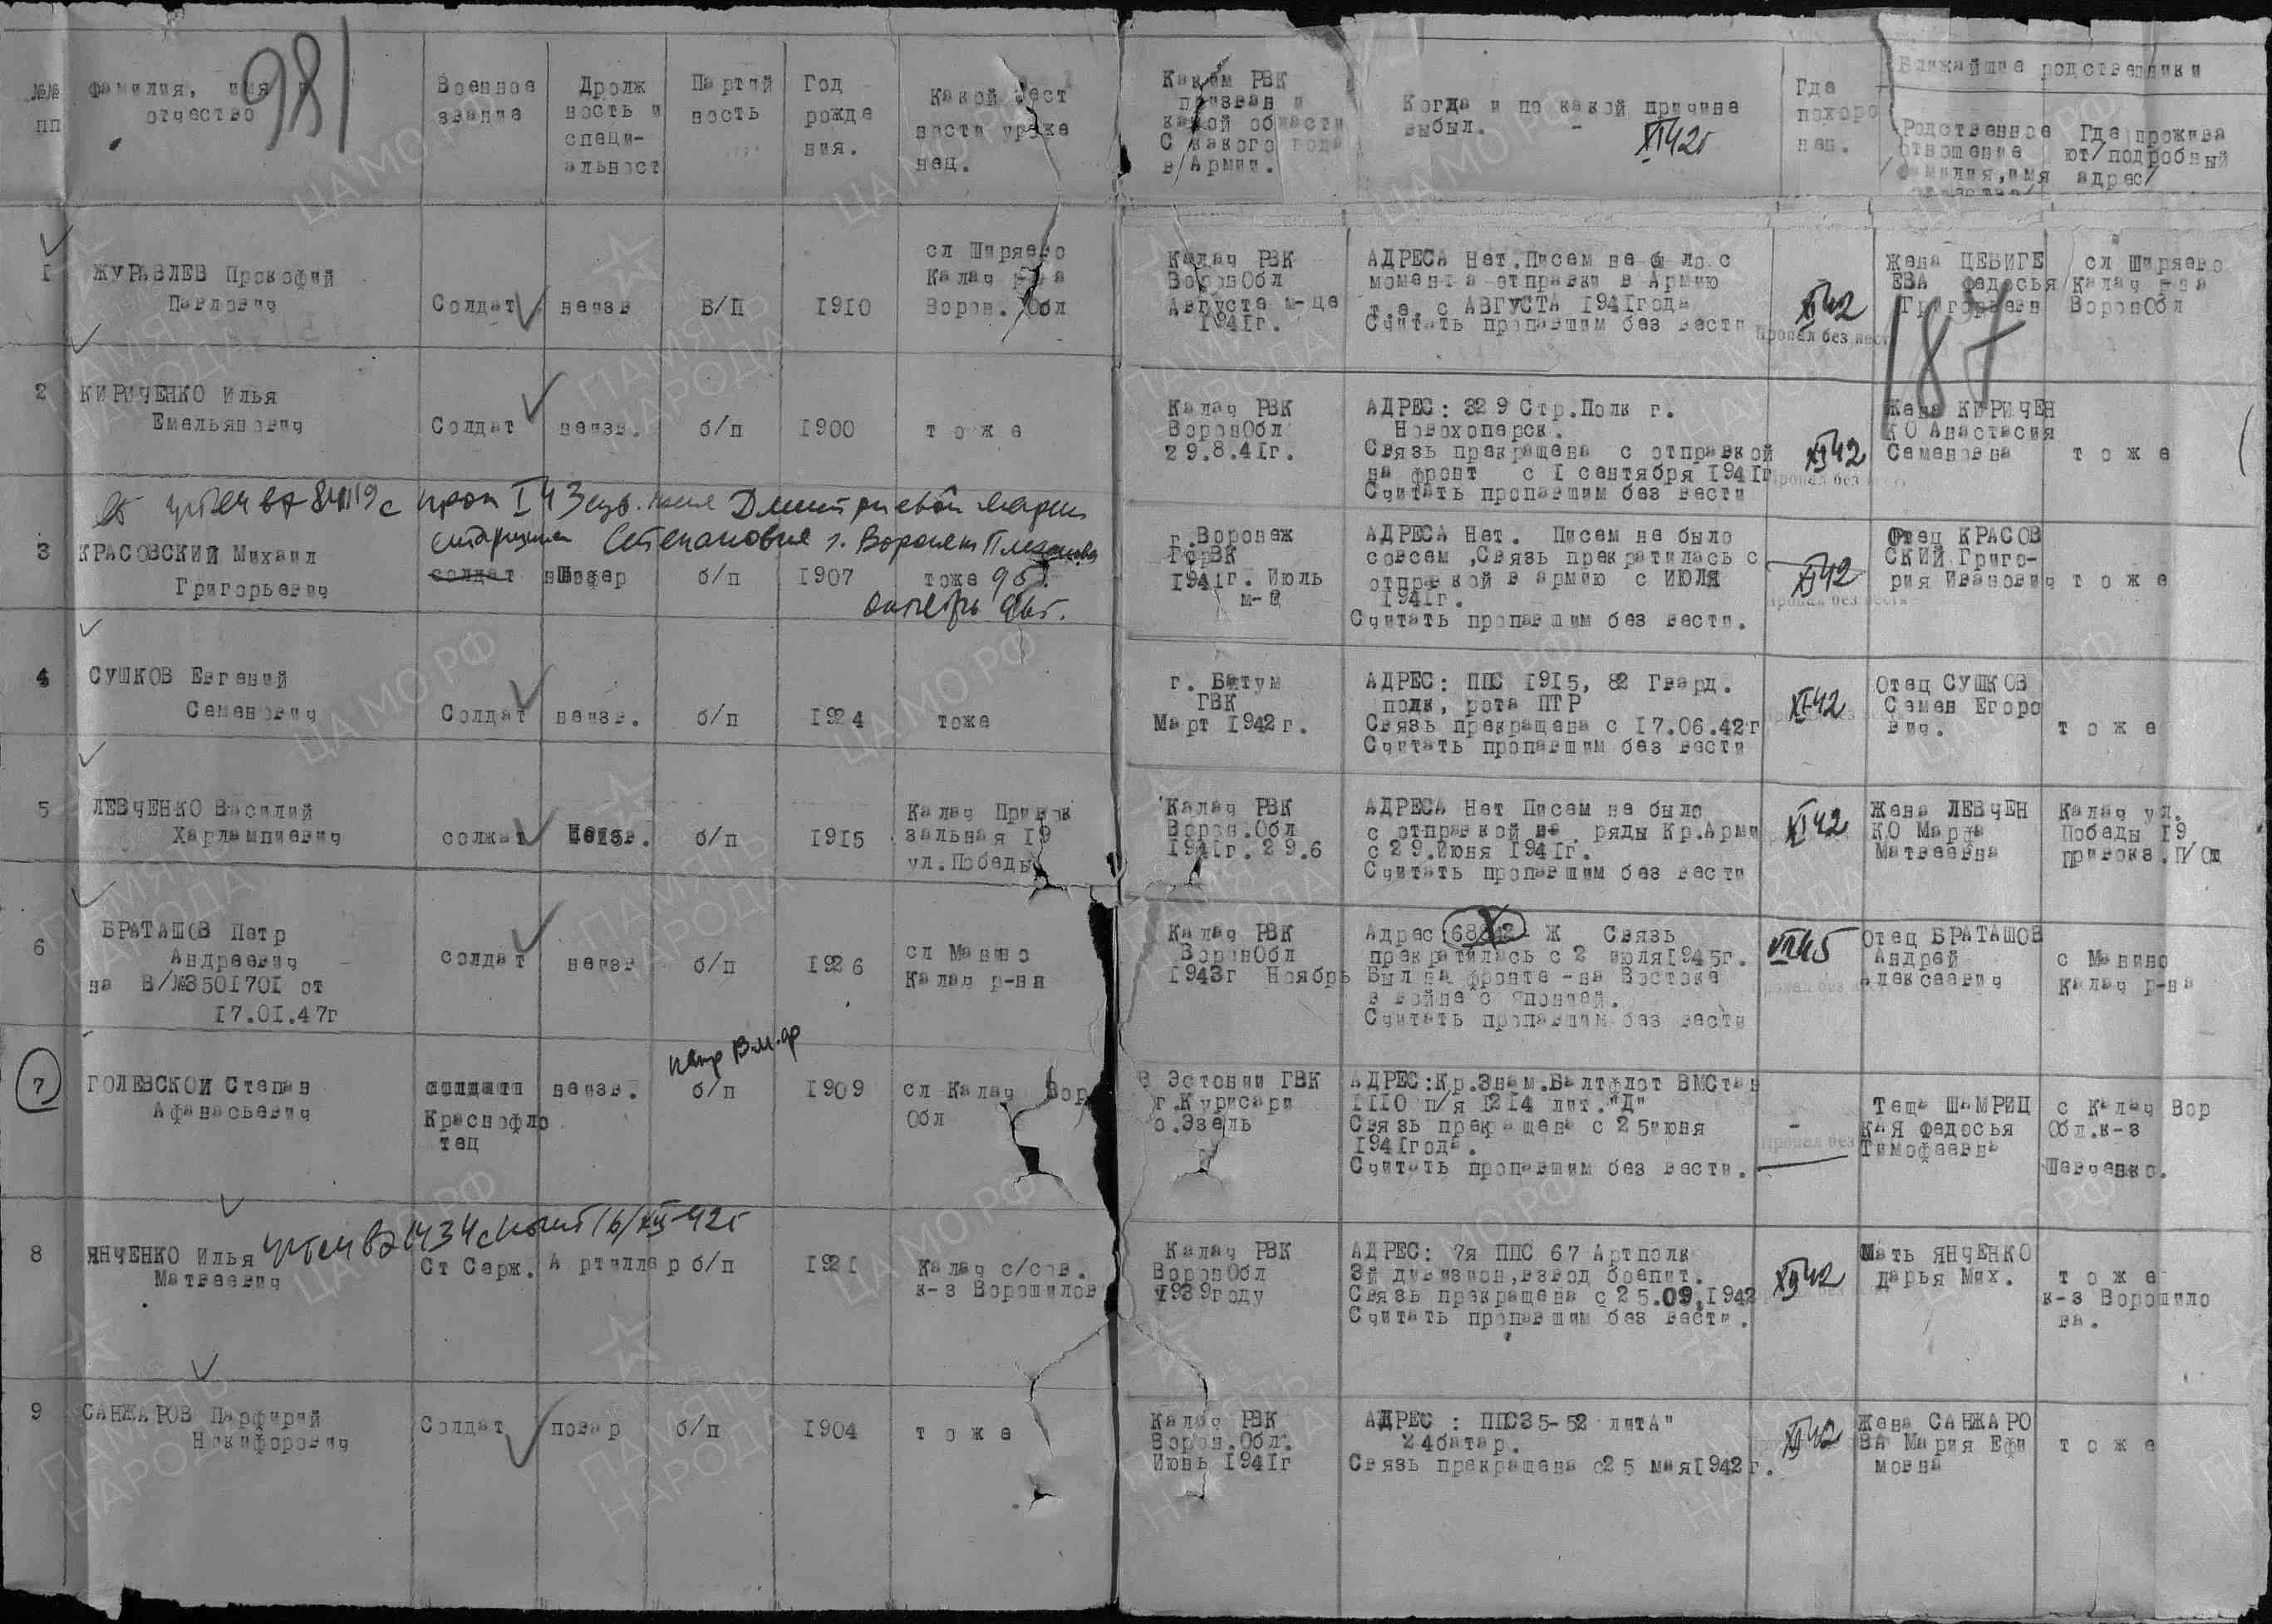 981
№№ пп
Фамилия, имя
отчество
Военное
звание
Дролж
ность и
специ-
альност
Партий
ность
Год
рожде
ния.
Какой мест
ности уроже
нец.
Каким РВК
призван и
какой области
С какого года
в/Армии.
Когда и по какой причине
выбыл. -
XI 42г
Где
похоро
нен.
Ближайшие родственники
Родственное
отношение
/фамилия,имя
отчество/
Где прожива
ют/подробный
адрес/
1
ЖУРАВЛЕВ Прокофий
Павлович
Солдат
неизв
Б/П
1910
сл Ширяево
Калач р-на
Ворон. Обл
Калач РВК
ВоронОбл
Августе м-це
1941г.
АДРЕСА Нет.Писем не было с
момента отправки в Армию
т.е. с АВГУСТА 1941года
Считать пропавшим без вести
XI 42
Пропал без вест
Жена ЦЕБИГЕ
ЕВА Федосья
Григорьевн
сл Ширяево
Калач р-на
ВоронОбл
187
2
КИРИЧЕНКО Илья
Емельянович
Солдат
неизв.
б/п
1900
т о ж е
Калач РВК
ВоронОбл
29.8.41г.
АДРЕС: 329 Стр.Полк г.
Новохоперск.
Связь прекращена с отправкой
на фронт с 1 сентября 1941г
Считать пропавшим без вести
XI 42
Пропал без вести
Жена КИРИЧЕН
КО Анастасия
Семеновна
т о ж е
Дмитриевой Марии
старшина Степановне г. Воронеж
3
КРАСОВСКИЙ Михаил
Григорьевич
солдат
Шофер
б/п
1907
тоже
октябрь
г.Воронеж
ГорВК
1941г. Июль
м-ц
АДРЕСА Нет. Писем не было
совсем ,Связь прекратилась с
отправкой в армию с ИЮЛЯ
1941г.
Считать пропавшим без вести.
XI 42
Пропал без вести
Отец КРАСОВ
СКИЙ Григо-
рия Иванович
т о ж е
4
СУШКОВ Евгений
Семенович
Солдат
неизв.
б/п
1924
тоже
г. Батум
ГВК
Март 1942г.
АДРЕС: ППС 1915, 82 Гвард.
полк, рота ПТР
Связь прекращена с 17.06.42г
Считать пропавшим без вести
XI-42
Отец СУШКОВ
Семен Егоро
вич.
т о ж е
5
ЛЕВЧЕНКО Василий
Харлампиевич
солжат
Неизв.
б/п
1915
Калач Привок
зальная 19
ул.Победы
Калач РВК
Ворон.Обл
1941г.29.6
АДРЕСА Нет Писем не было
с отправкой на ряды Кр.Арми
с 29.Июня 1941г.
Считать пропавшим без вести
XI 42
Жена ЛЕВЧЕН
КО Марфа
Матвеевна
Калач ул.
Победы 19
Привокз.П/От
6
БРАТАШОВ Петр
Андреевич
на В/№3501701 от
17.01.47г
солдат
неизв
б/п
1926
сл Манино
Калач р-нн
Калач РВК
ВоронОбл
1943г Ноябрь
Адрес 68842- Ж Связь
прекратилась с 2 июля1945г.
Был на фронте -на Востоке
в войне с Японией.
Считать пропавшим без вести
VII 45
Отец БРАТАШОВ
Андрей
Алексеевич
с Манино
Калач р-на
7
ГОЛЕВСКОЙ Степан
Афанасьевич
солдат
Краснофло
тец
неизв.
б/п
1909
сл Калач Вор
Обл
В Эстонии ГВК
г.Курисари
о.Эзель
АДРЕС:Кр.Знам.Балтфлот ВМСтан
1110 п/я 1214 лит."Д"
Связь прекращена с 25июня
1941года.
Считать пропавшим без вести.
-
Пропал без
Теща ШАМРИЦ
КАЯ Федосья
Тимофеевна
с Калач Вор
Обл.к-з
Шевченко.
8
ЯНЧЕНКО Илья
Матвеевич
Ст Серж.
А ртиллер
б/п
1921
Калач с/сов.
к-з Ворошилов
Калач РВК
ВоронОбл
1939году
АДРЕС: 7я ППС 67 Артполк
3й дивизион,взвод боепит.
Связь прекращена с25.09.1942
Считать пропавшим без вести.
XII 42
Мать ЯНЧЕНКО
Дарья Мих.
т о ж е
к-з Ворошило
ва.
9
САНЖАРОВ Парфирий
Никифорович
Солдат
повар
б/п
1904
т о ж е
Калач РВК
Ворон.Обл.
Июнь 1941г
АДРЕС : ППС35-52 литА"
24батар.
Связь прекращена с25 мая1942г.
XI 42
Жена САНЖАРО
ВА Мария Ефи
мовна
т о ж е
ЦАМО РФ
ПАМЯТЬ
НАРОДА